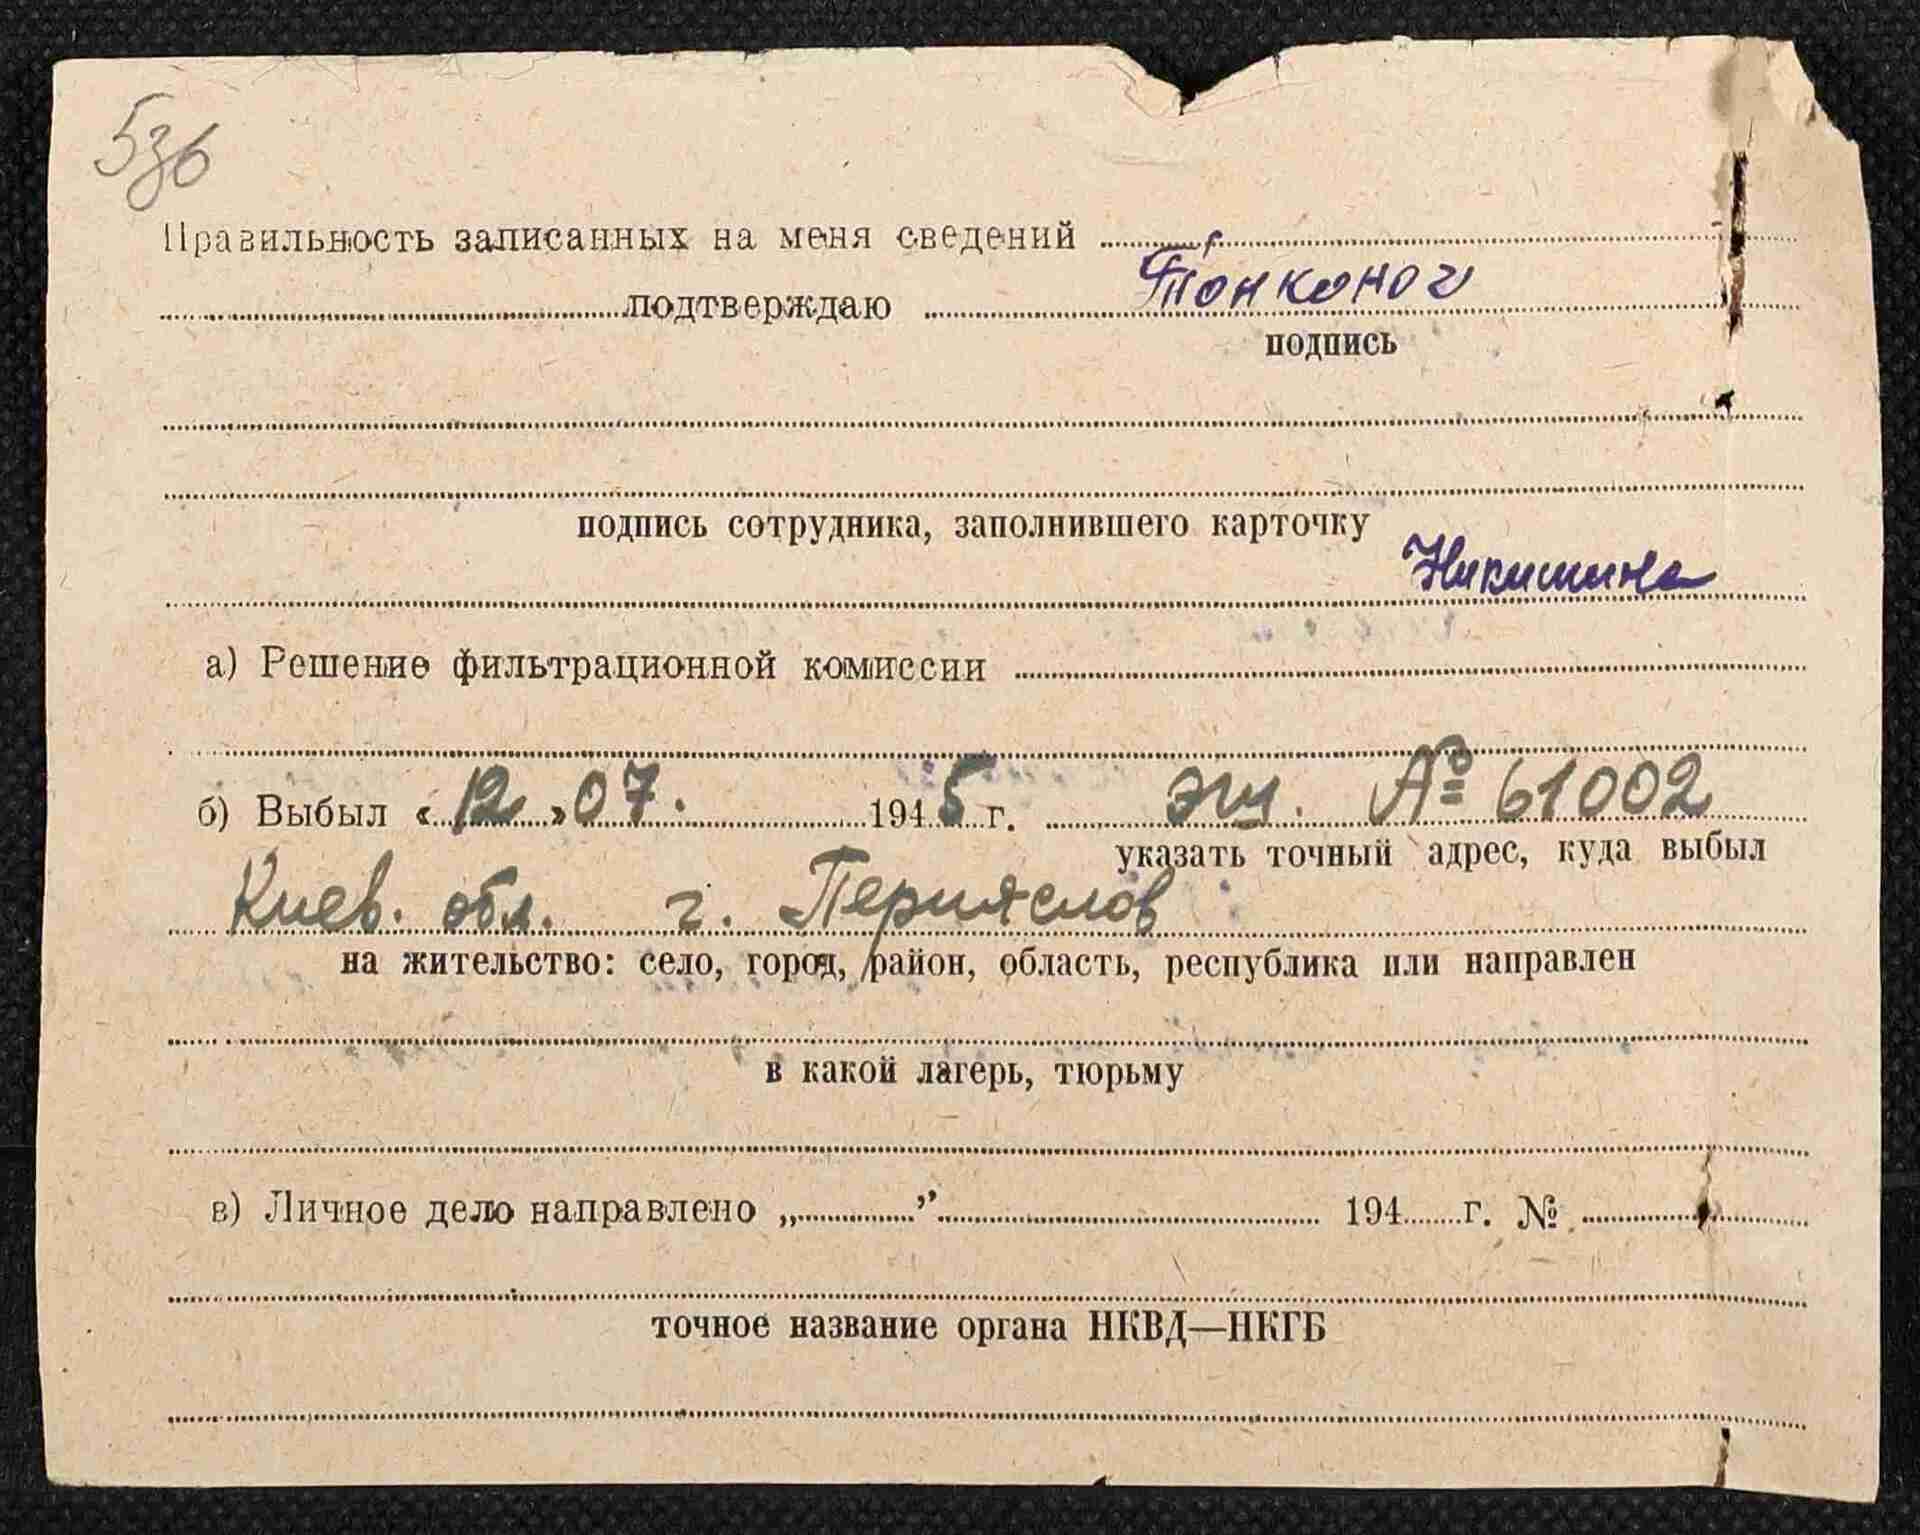 536
Правильность записанных на меня сведений
подтверждаю Тонконог
подпись
подпись сотрудника, заполнившего карточку
Никишина
а) Решение фильтрационной комиссии
б) Выбыл « 12 » 07. 1945 г. эш. № 61002
указать точный адрес, куда выбыл
Киев. обл. г. Перияслов
на жительство: село, город, район, область, республика или направлен
в какой лагерь, тюрьму
в) Личное дело направлено „ ” 194 г. №
точное название органа НКВД—НКГБ